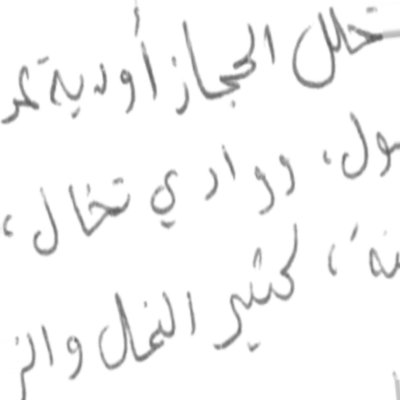 تخلل الحجاز أودية تمر
ول، ووادي تخال،
نة، كثير النخل والز